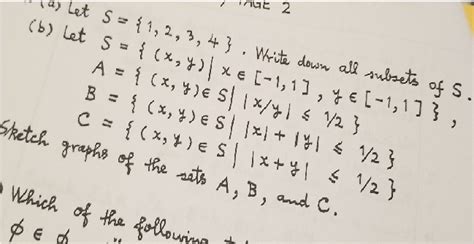 PAGE 2
(a) Let S = {1, 2, 3, 4}. Write down all subsets of S.
(b) Let S = {(x, y) | x ∈ [-1, 1], y ∈ [-1, 1]},
A = {(x, y) ∈ S | |x/y| ≤ 1/2}
B = {(x, y) ∈ S | |x| + |y| ≤ 1/2}
C = {(x, y) ∈ S | |x + y| ≤ 1/2}
Sketch graphs of the sets A, B, and C.
Which of the following
∅ ∈ ∅